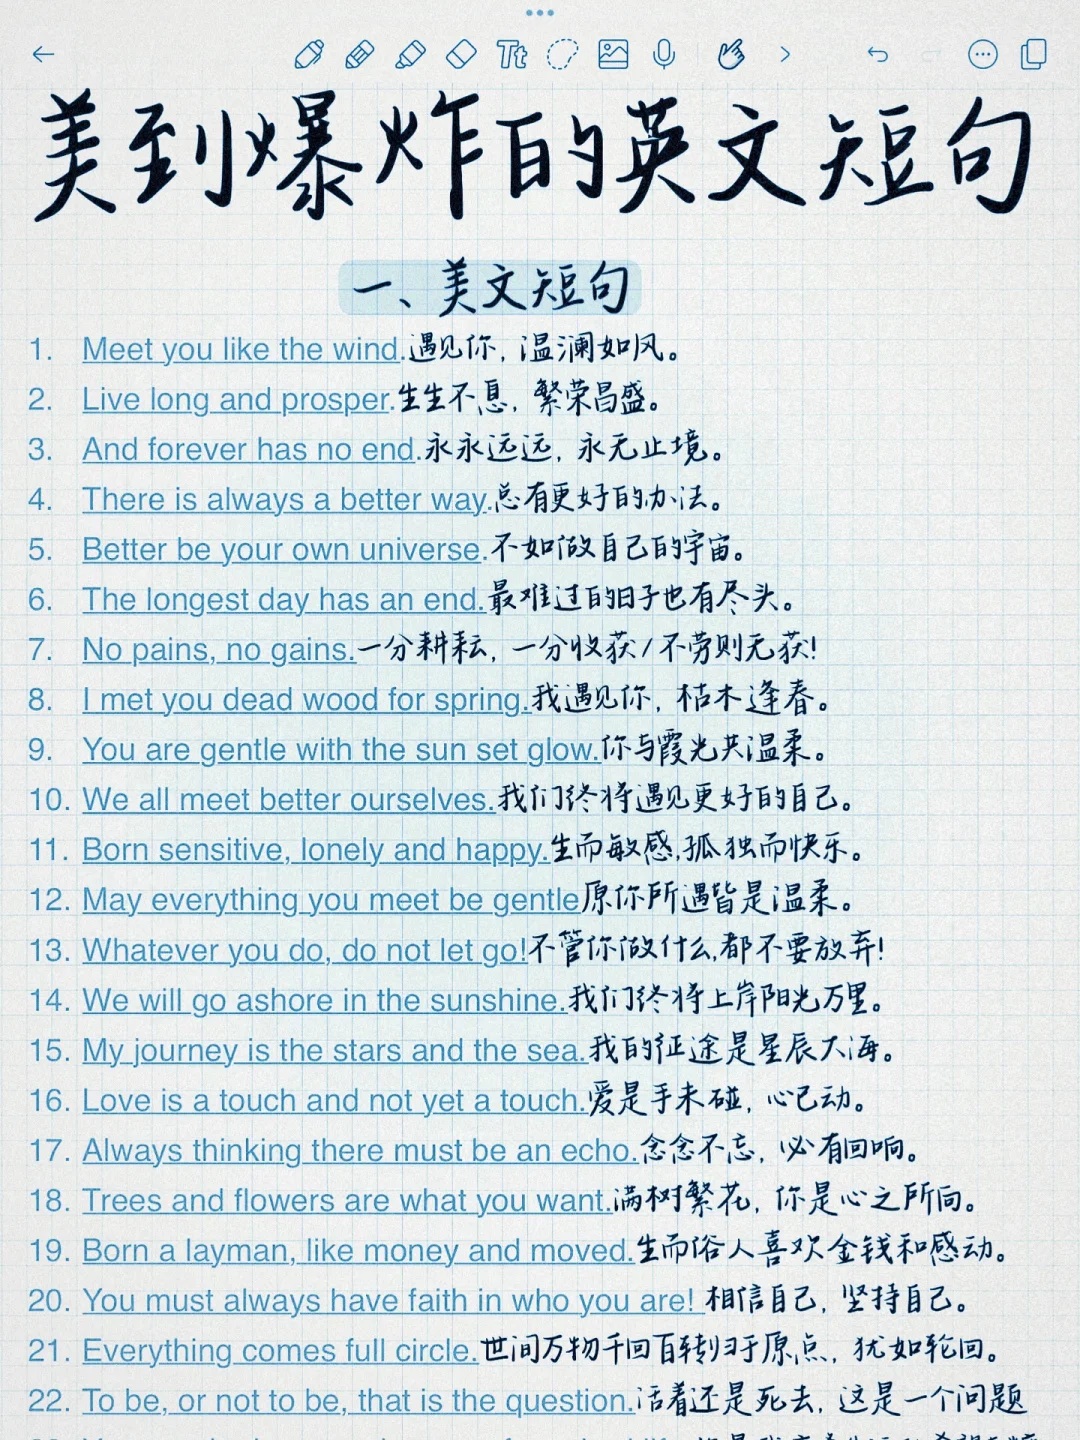 Tt
美到爆炸的英文短句
一、美文短句
1. Meet you like the wind.遇见你，温澜如风。
2. Live long and prosper.生生不息，繁荣昌盛。
3. And forever has no end.永永远远，永无止境。
4. There is always a better way.总有更好的办法。
5. Better be your own universe.不如做自己的宇宙。
6. The longest day has an end.最难过的日子也有尽头。
7. No pains, no gains.一分耕耘，一分收获/不劳则无获!
8. I met you dead wood for spring.我遇见你，枯木逢春。
9. You are gentle with the sun set glow.你与霞光共温柔。
10. We all meet better ourselves.我们终将遇见更好的自己。
11. Born sensitive, lonely and happy.生而敏感,孤独而快乐。
12. May everything you meet be gentle原你所遇皆是温柔。
13. Whatever you do, do not let go!不管你做什么,都不要放弃!
14. We will go ashore in the sunshine.我们终将上岸阳光万里。
15. My journey is the stars and the sea.我的征途是星辰大海。
16. Love is a touch and not yet a touch.爱是手未碰，心已动。
17. Always thinking there must be an echo.念念不忘，必有回响。
18. Trees and flowers are what you want.满树繁花，你是心之所向。
19. Born a layman, like money and moved.生而俗人喜欢金钱和感动。
20. You must always have faith in who you are! 相信自己，坚持自己。
21. Everything comes full circle.世间万物千回百转归于原点，犹如轮回。
22. To be, or not to be, that is the question.活着还是死去，这是一个问题